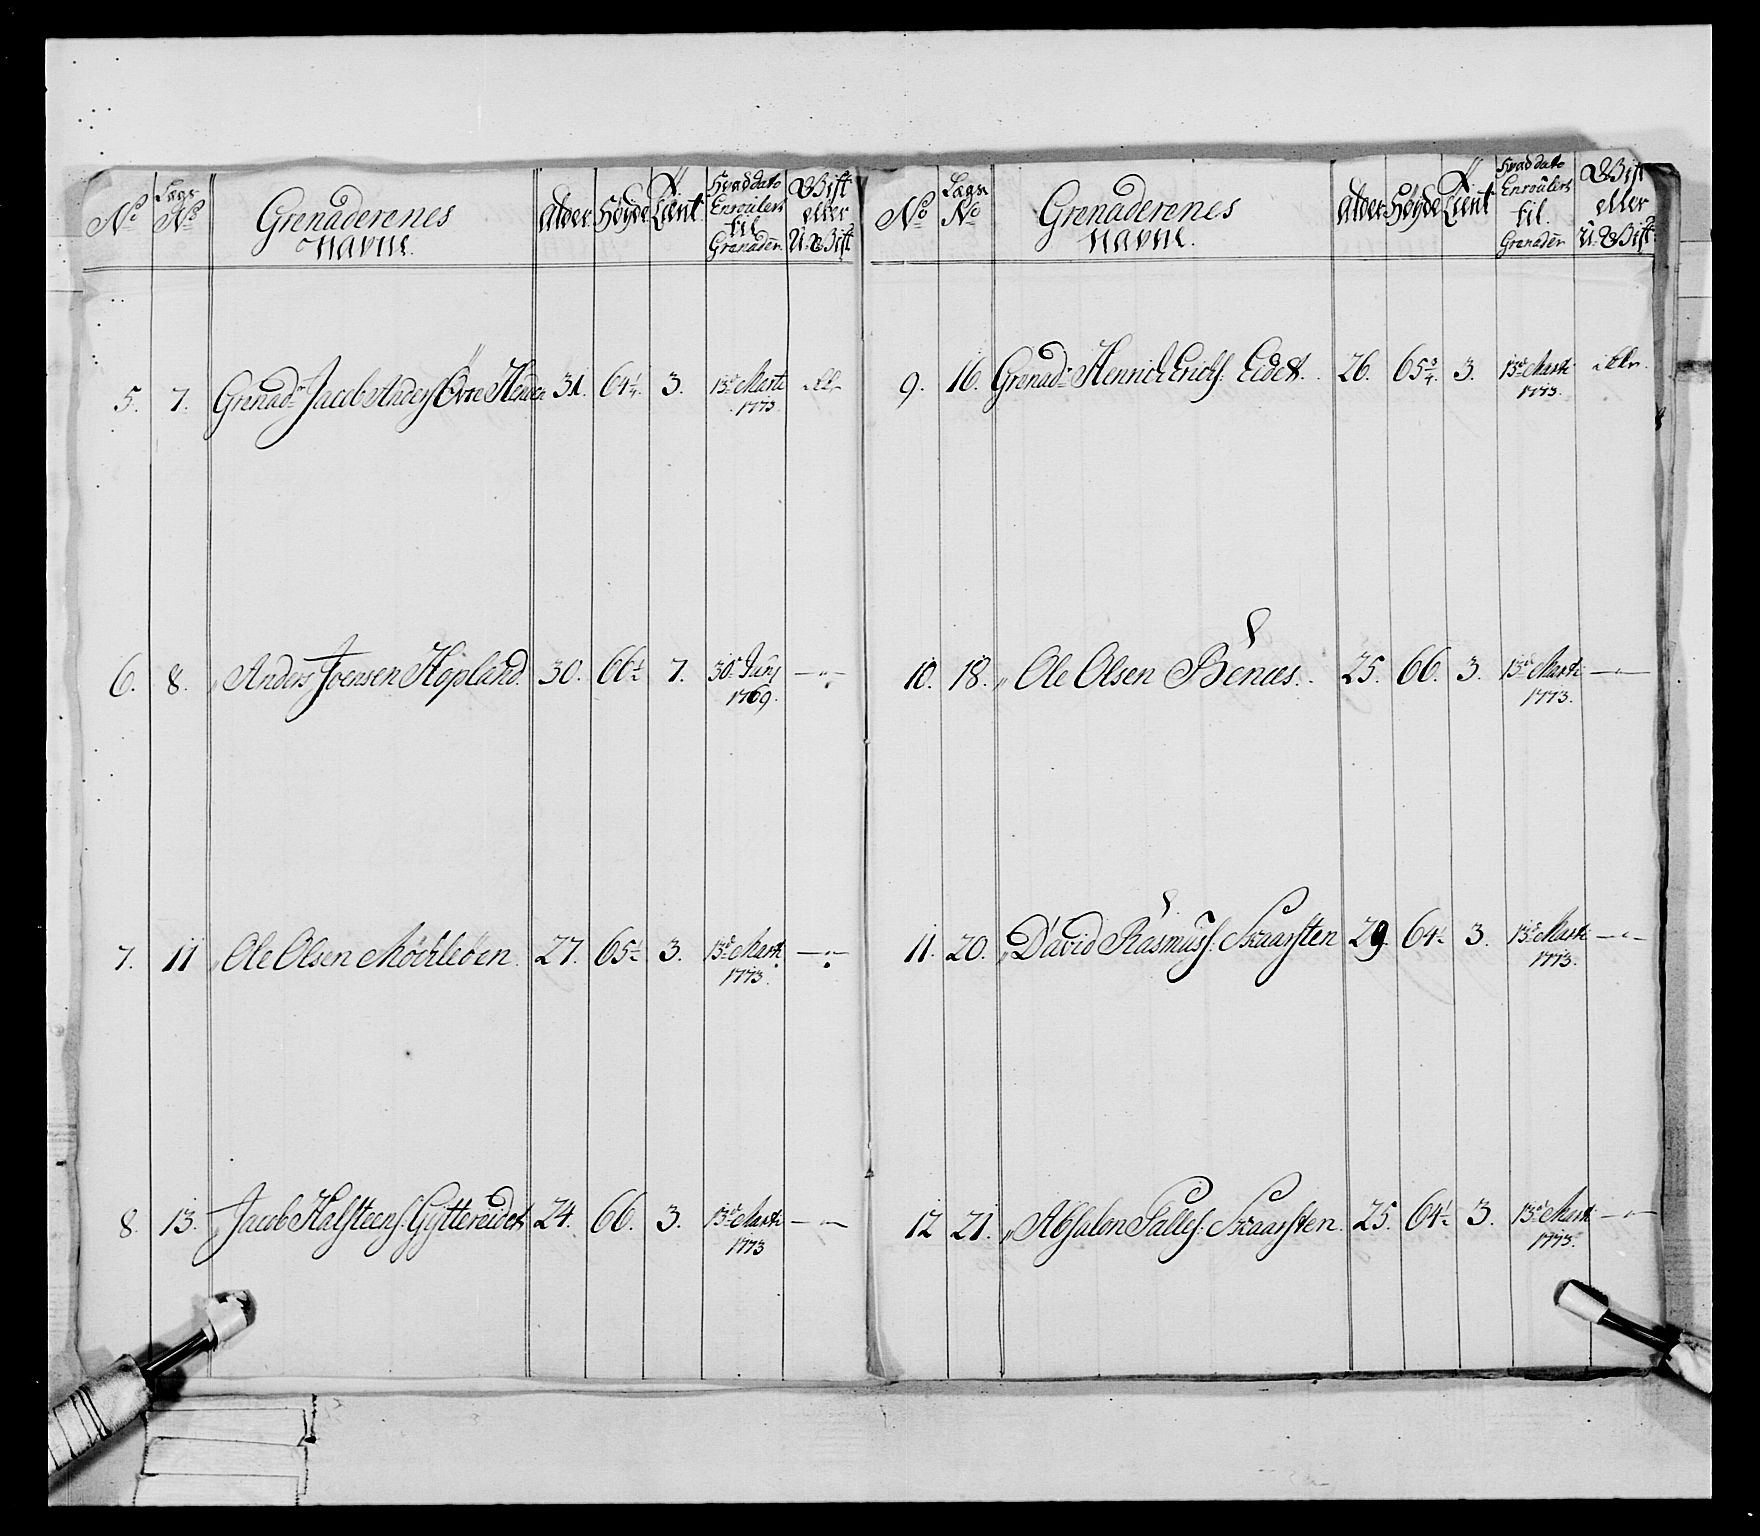 No
Lægs No
Grenaderenes Navne.
Alder
Høyde
Tient
Hvad dato Enroulert til Grenader
Gift eller U:Gift
5. 7. Grenadr Jacob Anders: Øvre 31. 64¼. 3. 13de Marti 1773.
6. 8. " Anders Joensen Hopland. 30. 66½ 7. 30te Junj 1769. —"—
7. 11 " Ole Olsen 27. 65½ 3. 13de Marti 1773. —"—
8. 13. " Jacob Halsteens: Gyttereidet 24. 66. 3. 13de Marti 1773 —"—
No
Lægs No
Grenaderenes Navne.
Alder
Høyde
Tient
Hvad dato Enroulert til Grenader
Gift eller U:Gift
9. 16. Grenadr Hennich Erichs: Eidet. 26. 65¾. 3. 13de Marti 1773.
10. 18. " Ole Olsen Bönæs. 25. 66. 3. 13de Marti 1773. —"—
11. 20. " David Rasmuss: Skaarsten 29 64½ 3. 13de Marti 1773. —"—
12 21. " Absalon Palles: Skaarsten. 25. 64½ 3. 13de Marti 1773. —"—